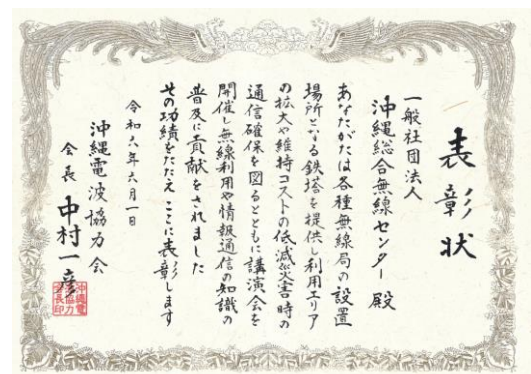 表彰状
一般社団法人
沖縄総合無線センター 殿
あなたがたは各種無線局の設置
場所となる鉄塔を提供し利用エリア
の拡大や維持コストの低減災害時の
通信確保を図るとともに講演会を
開催し無線利用や情報通信の知識の
普及に貢献をされました
その功績をたたえここに表彰します
令和六年六月一日
沖縄電波協力会
会長 中村一彦
沖縄電
波協力
会長印